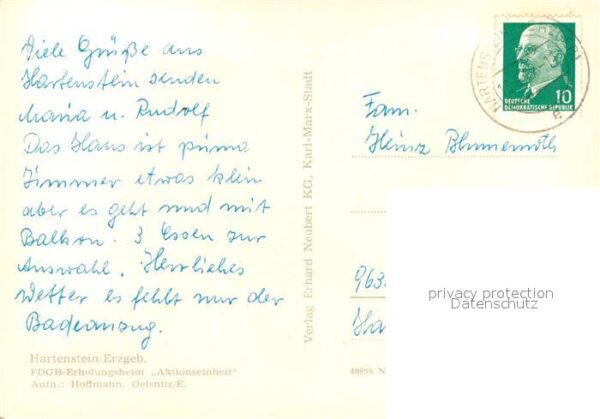 Viele Grüße aus
Hartenstein senden
Maria u. Rudolf
Das Haus ist prima
Zimmer etwas klein
aber es geht und mit
Balkon. 3 Essen zur
Auswahl. Herrliches
Wetter es fehlt nur der
Badeanzug.
Hartenstein Erzgeb.
FDGB-Erholungsheim „Aktionseinheit“
Aufn.: Hoffmann, Oelsnitz/E.
Verlag Erhard Neubert KG, Karl-Marx-Stadt
HARTENS
10
DEUTSCHE
DEMOKRATISCHE REPUBLIK
Fam.
Heinz Blumenroth
963
Ha
privacy protection
Datenschutz
40893 N